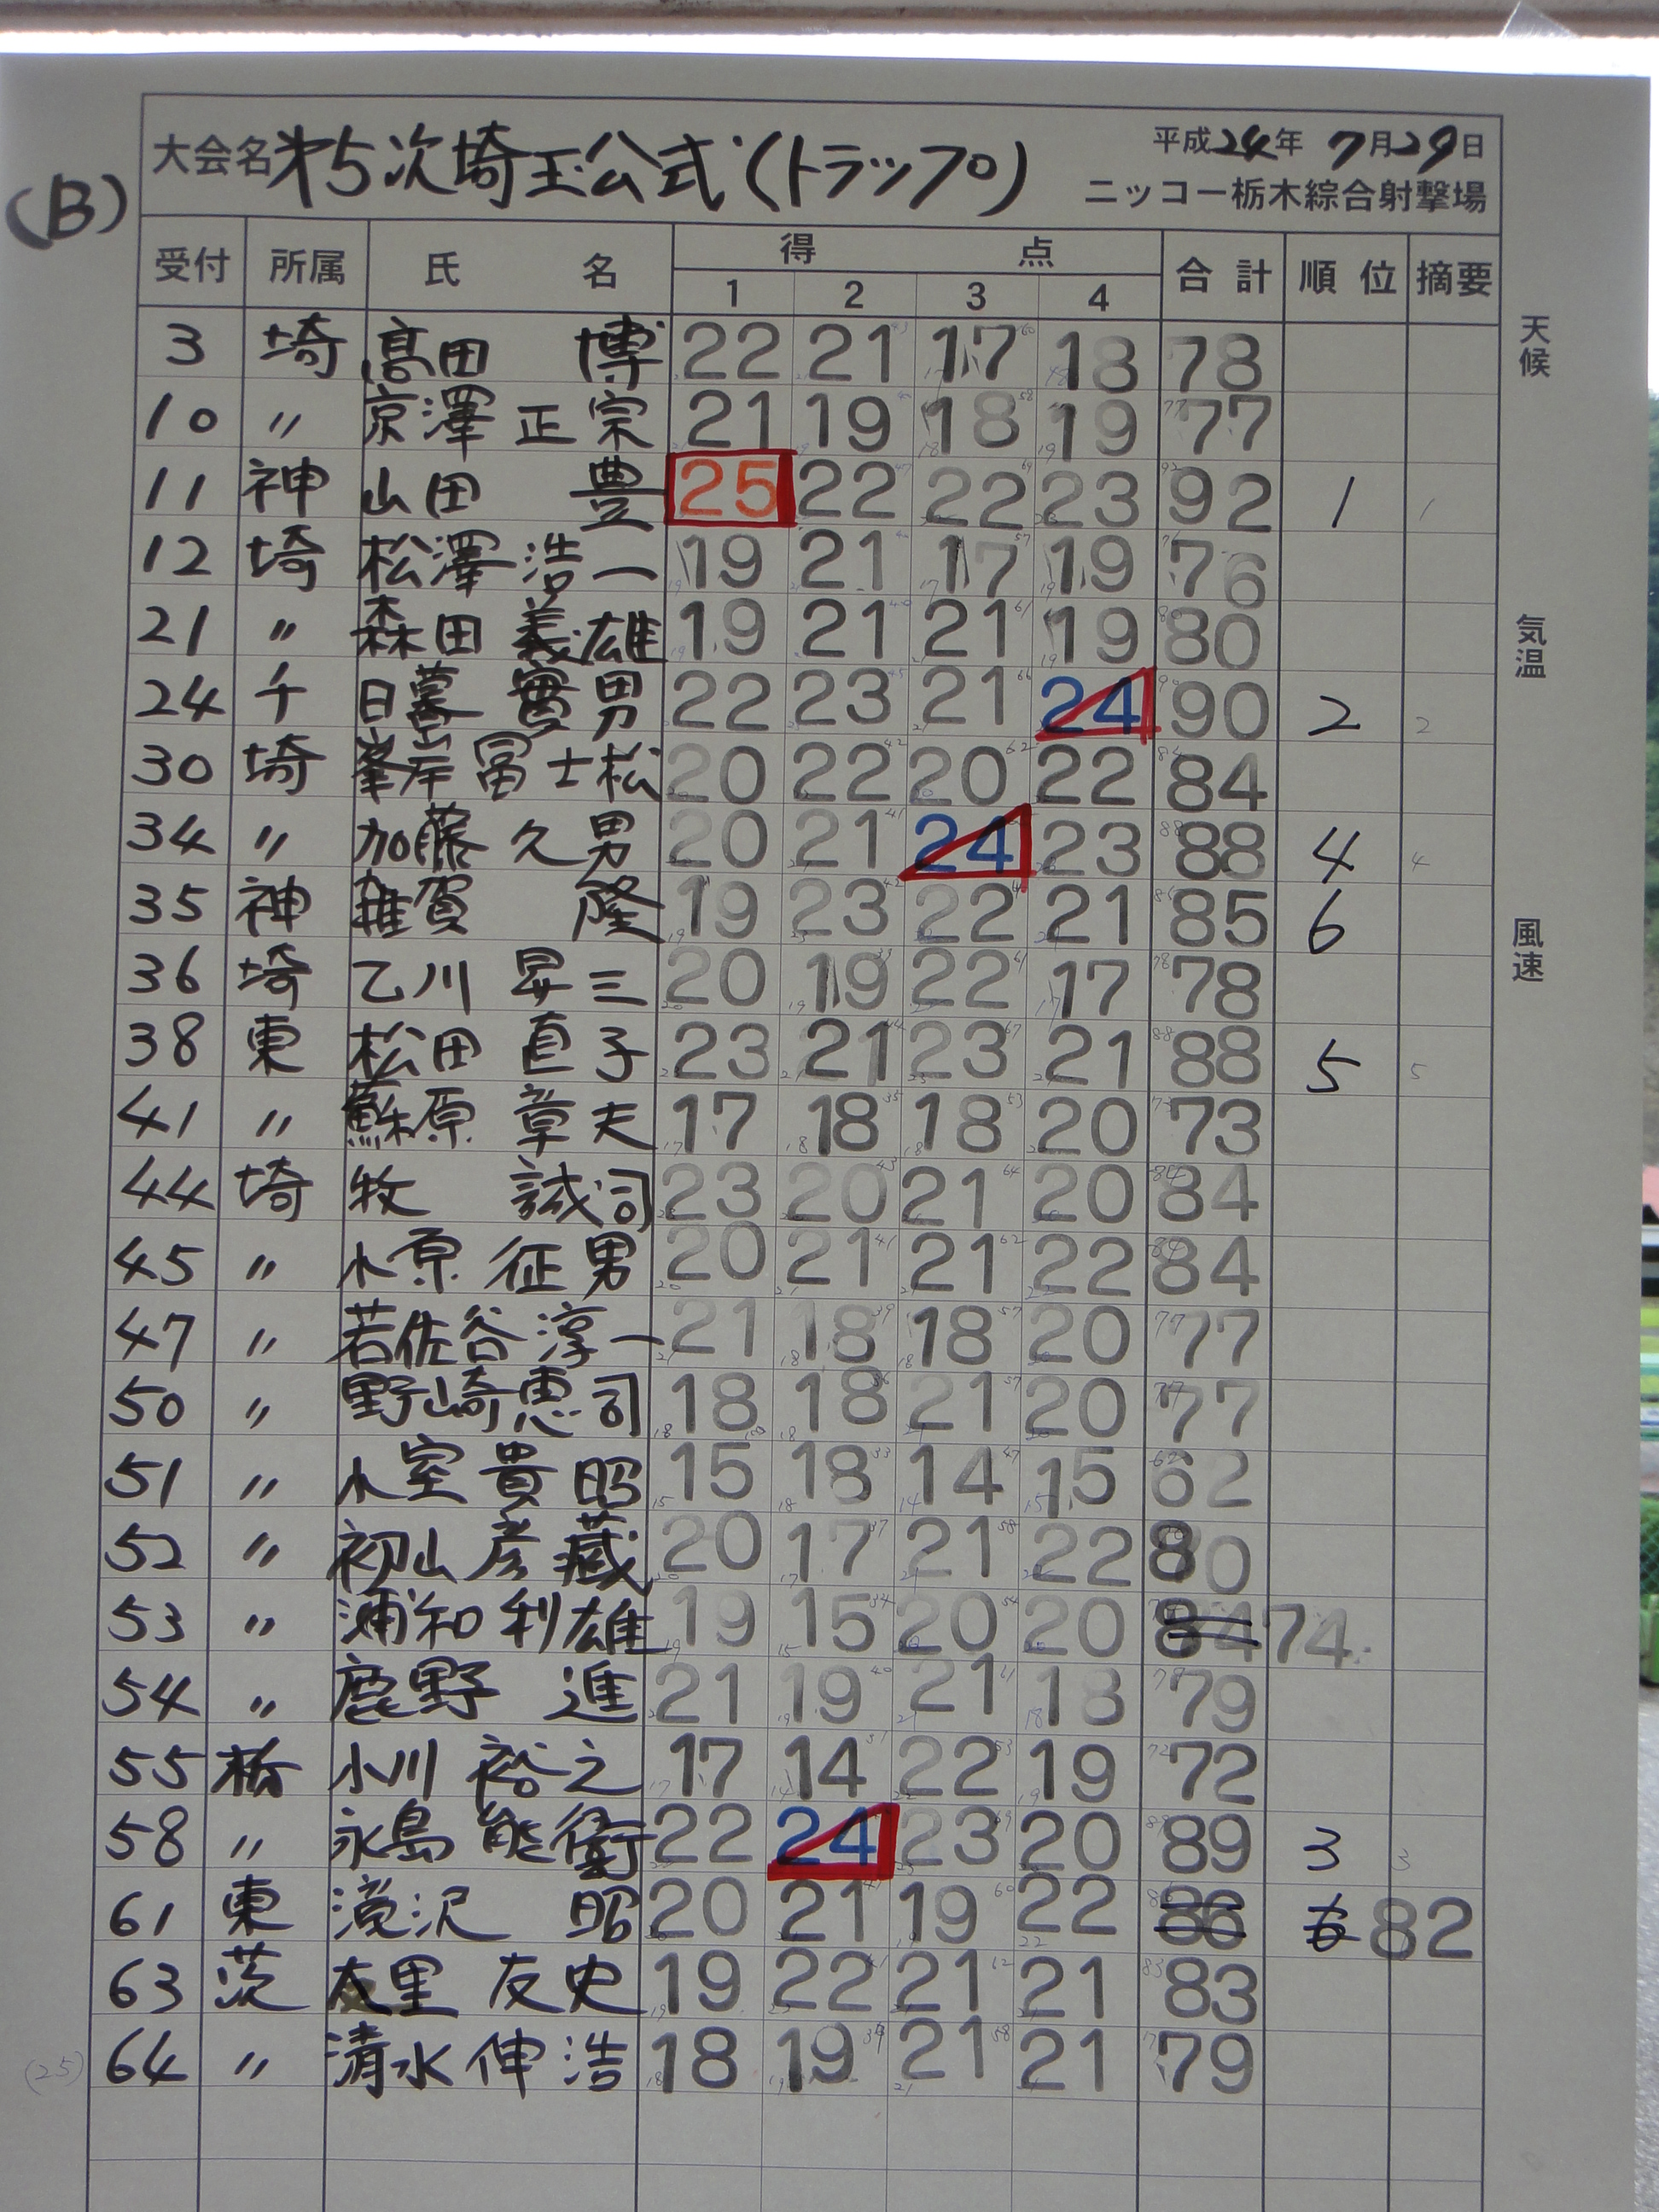 (B)
大会名 第5次埼玉公式(トラップ) 平成24年 7月29日
ニッコー栃木綜合射撃場
受付 所属 氏 名 得 点 合計 順位 摘要
1 2 3 4
3 埼 髙田 博 22 21 17 18 78
10 〃 京澤 正宗 21 19 18 19 77
11 神 山田 豊 25 22 22 23 92 1 1
12 埼 松澤 浩一 19 21 17 19 76
21 〃 森田 義雄 19 21 21 19 80
24 千 日暮 實男 22 23 21 24 90 2 2
30 埼 峯岸 冨士松 20 22 20 22 84
34 〃 加藤 久男 20 21 24 23 88 4 4
35 神 雑賀 隆 19 23 22 21 85 6
36 埼 乙川 昇三 20 19 22 17 78
38 東 松田 直子 23 21 23 21 88 5 5
41 〃 蘇原 章夫 17 18 18 20 73
44 埼 牧 誠司 23 20 21 20 84
45 〃 小原 征男 20 21 21 22 84
47 〃 若佐谷 淳一 21 18 18 20 77
50 〃 野崎 恵司 18 18 21 20 77
51 〃 小室 貴昭 15 18 14 15 62
52 〃 初山 彦蔵 20 17 21 22 80
53 〃 浦和 利雄 19 15 20 20 84 74
54 〃 鹿野 進 21 19 21 18 79
55 栃 小川 裕之 17 14 22 19 72
58 〃 永島 能衛 22 24 23 20 89 3 3
61 東 滝沢 昭 20 21 19 22 86 6 82
63 茨 大里 友史 19 22 21 21 83
(25) 64 〃 清水 伸浩 18 19 21 21 79
天候
気温
風速